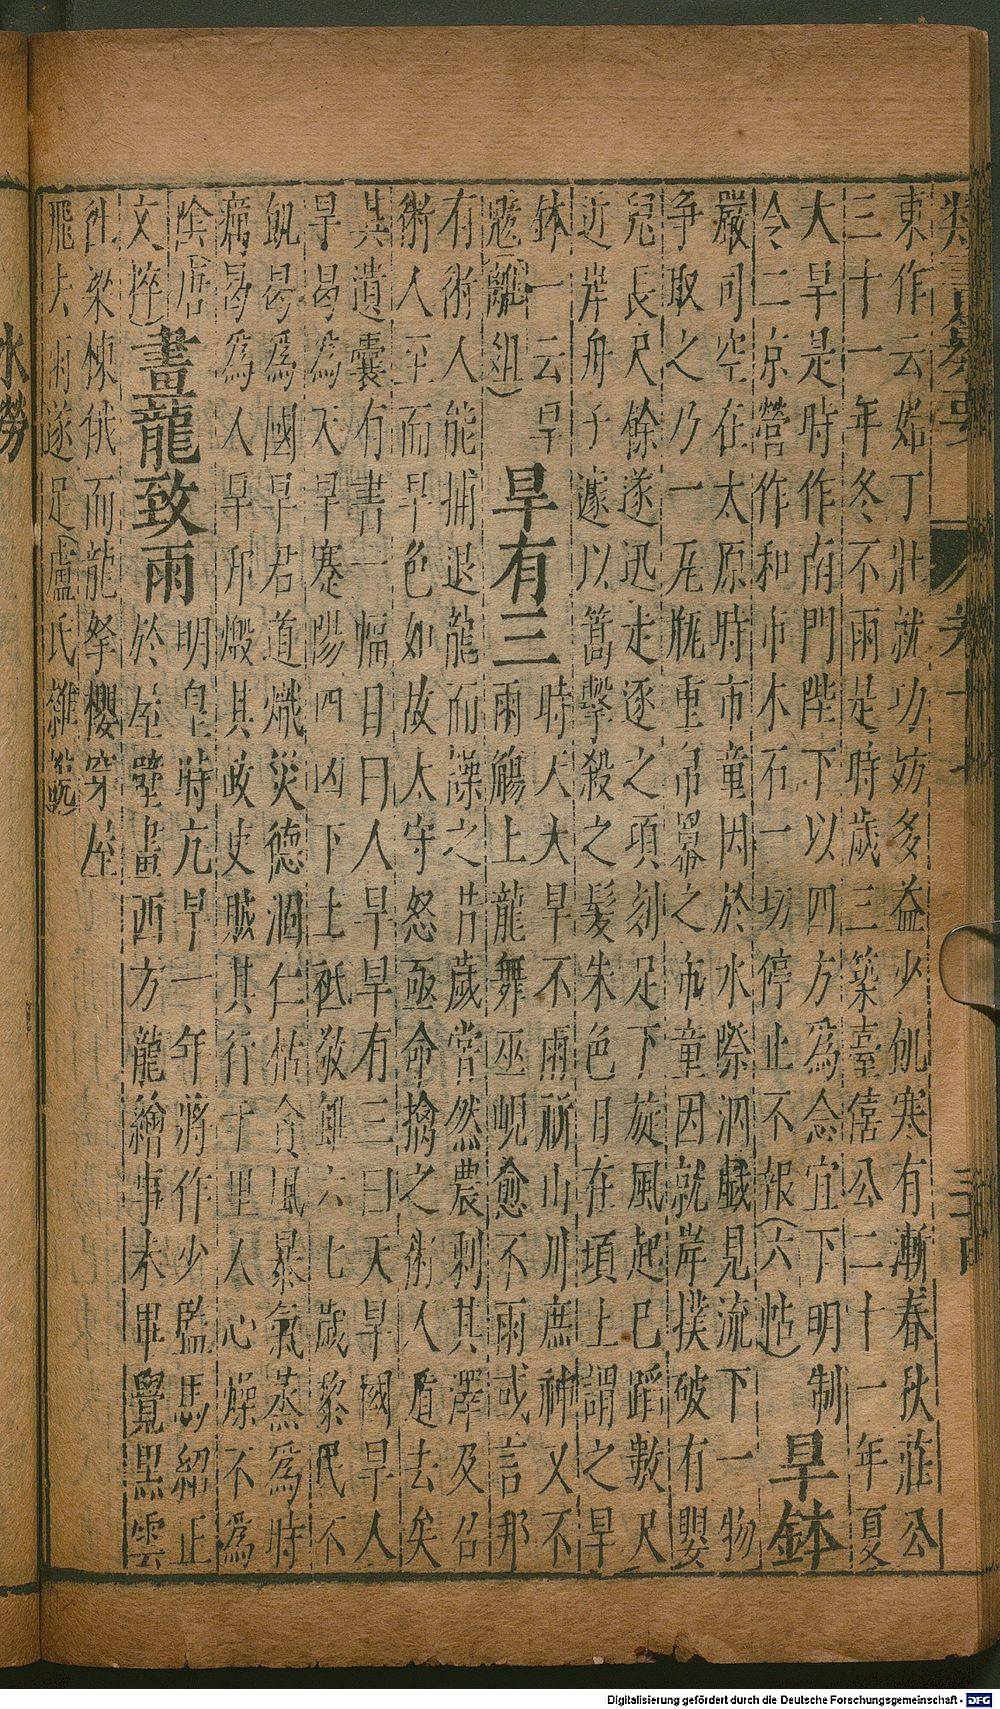 類書纂要
卷十
東作云始丁壯就功妨多益少飢寒有漸春秋莊公
三十一年冬不雨是時歲三築臺僖公二十一年夏
大旱是時作南門陛下以四方為念宜下明制
令二京營作和市木石一切停止不報(六帖)
旱鉢
嚴司空在太原時市童因於水際泅戲見流下一物
争取之乃一瓦瓶重帛羃之市童因就岸撲破有嬰
兒長尺餘遂迅走逐之項刻足下旋風起已蹈數尺
近岸舟子遽以篙擊殺之髮朱色目在項上謂之旱
鉢一云旱
魃(離俎)
旱有三
時天大旱不雨祈山川庶神又不
雨觴上龍舞巫峴愈不雨或言那
有術人能捕退龍而澡之昔歲嘗然農刺其澤及召
術人至而旱色如故太守怒亟命擒之術人盾去矣
其遺囊有書一幅目曰人旱旱有三曰天旱國旱人
旱曷為天旱蹇陽四凶下上祗敬雖六七歲黎民不
飢曷為國旱君道熾災德涸仁枯貪風暴氣蒸為時
癘曷為人旱邪燬其政吏賊其行千里人心燥不為
陰(唐
文粹)
畫龍致雨
明皇時亢旱一年將作少監馮紹正
於屋壁畫西方龍繪事未畢覺黑雲
從梁棟俄而龍拏櫻穿屋
飛去雨遂足(盧氏雜說)
水勞
Digitalisierung gefördert durch die Deutsche Forschungsgemeinschaft - DFG